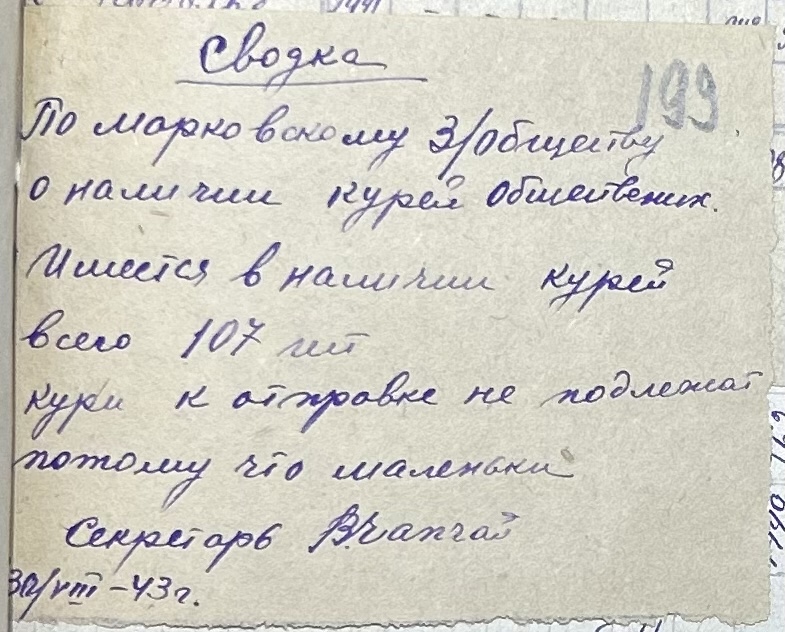 Сводка
199
По марковскому З/обществу
о наличии курей общественых.
Имеется в наличии курей
всего 107 шт
кури к отправке не подлежат
потому что маленьки
Секретарь
30/VIII-43г.